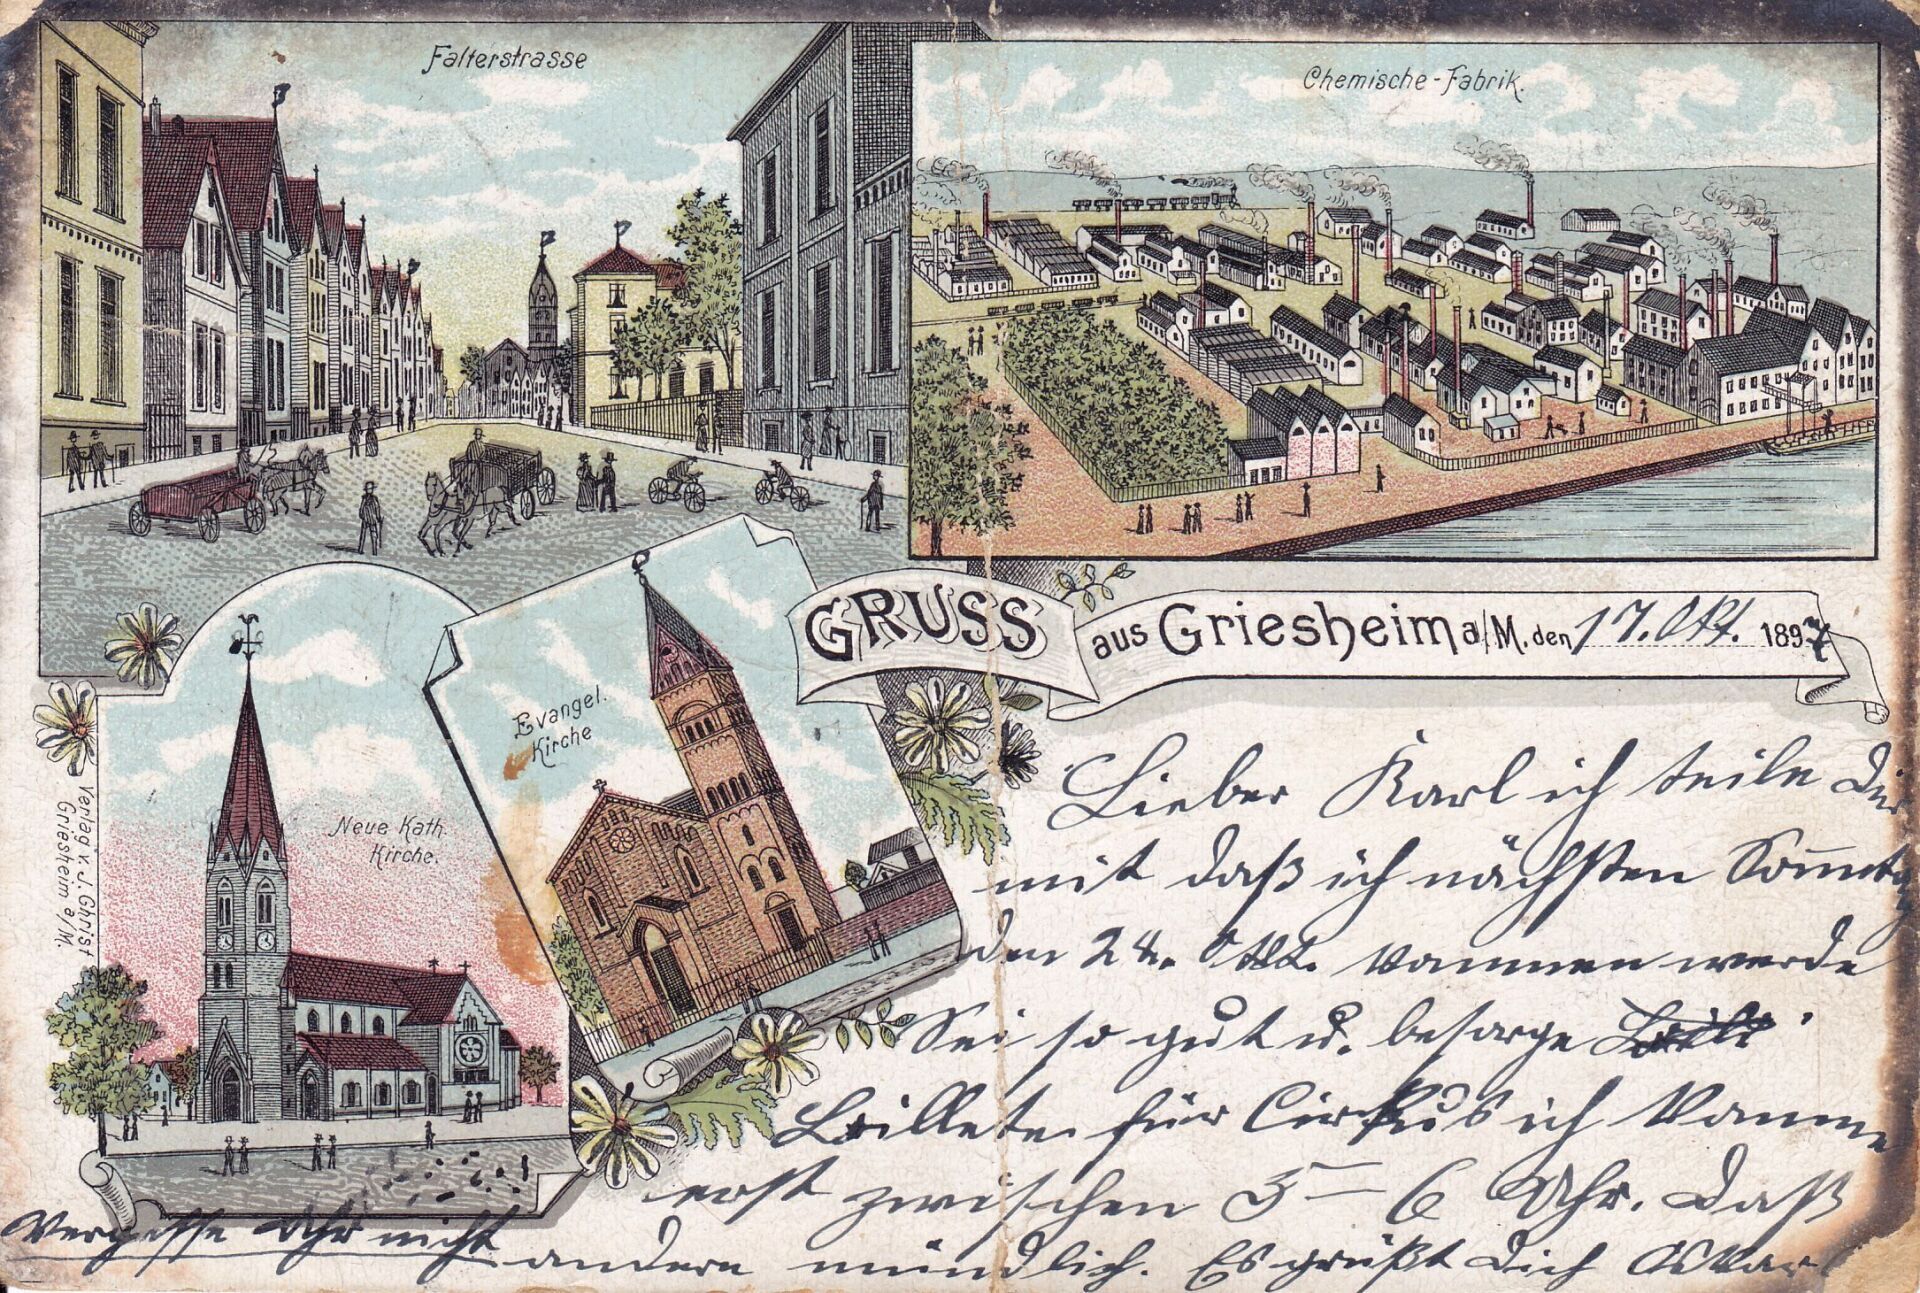 Falterstrasse
Chemische-Fabrik.
GRUSS aus Griesheim a/M. den 17. Okt. 1897
Evangel.
Kirche
Neue Kath.
Kirche.
Verlag v. J. Christ
Griesheim a/M.
Lieber Karl ich teile Dir
mit daß ich nächsten Sonntag
den 24. Okt. kommen werde
Sei so gut u. besorge
Billete für Cirkus ich komme
erst zwischen 5 – 6 Uhr. Daß
andere mündlich. Es grüßt Dich
Vergesse Uhr nicht